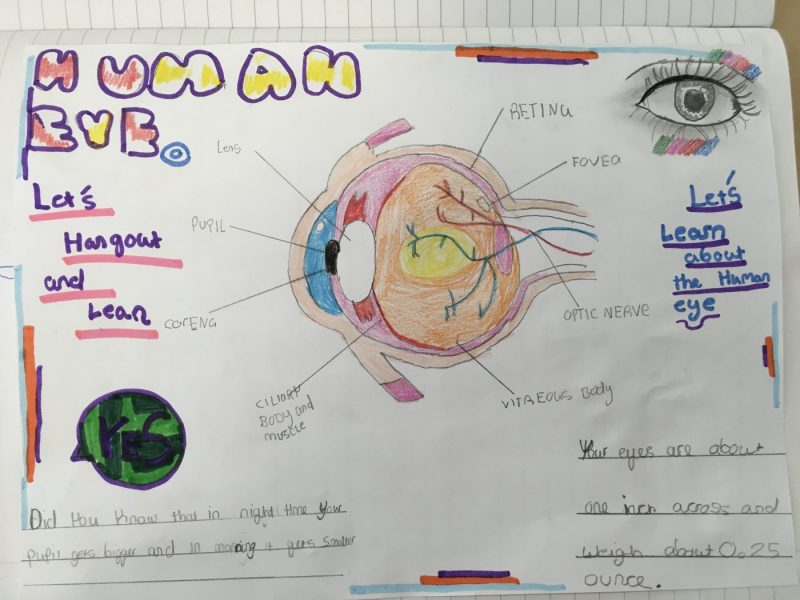 HUMAN
EYE.
Let's
Hangout
and
Lean
Lens
PUPIL
CORENA
CILIARY
BODY and
muscle
RETINA
FOVEA
OPTIC NERVE
VITREOUS Body
Let's
Learn
about
the Human
eye
YES
Did You Know that in night time Your
pupil gets bigger and in morning it gets smaller
Your eyes are about
one inch across and
weigh about 0.25
ounce.